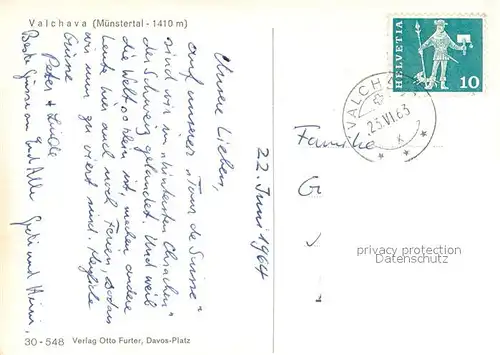 Valchava (Münstertal - 1410 m)
Unsere Lieben,
auf unserer "Tour de Suisse"
sind wir im "hintersten Chrachen"
der Schweiz gelandet. Und weil
die Welt so klein ist, machen andere
Leute hier auch noch Ferien, sodass
wir nun zu viert sind. Herzliche
Grüsse
Peter +
Beste Grüsse an Euch Alle und Heini,
22. Juni 1964
HELVETIA
10
VALCHAVA
23.VI.63
Familie
G
privacy protection
Datenschutz
30-548 Verlag Otto Furter, Davos-Platz